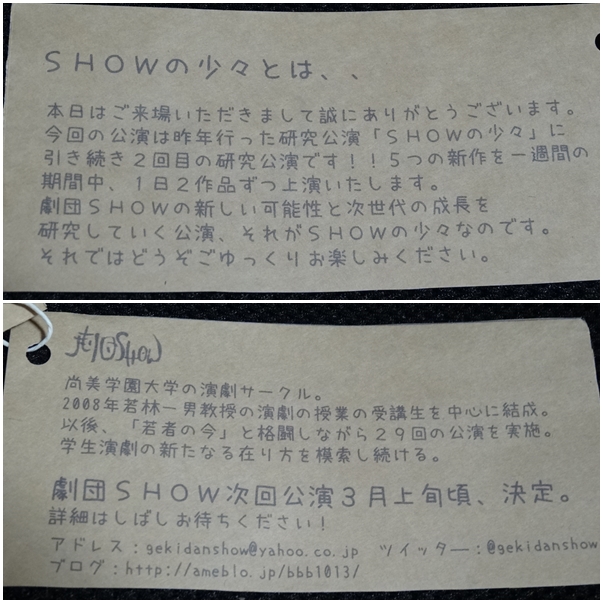 SHOWの少々とは、、
本日はご来場いただきまして誠にありがとうございます。
今回の公演は昨年行った研究公演「SHOWの少々」に
引き続き2回目の研究公演です!!5つの新作を一週間の
期間中、1日2作品ずつ上演いたします。
劇団SHOWの新しい可能性と次世代の成長を
研究していく公演、それがSHOWの少々なのです。
それではどうぞごゆっくりお楽しみください。
劇団SHOW
尚美学園大学の演劇サークル。
2008年若林一男教授の演劇の授業の受講生を中心に結成。
以後、「若者の今」と格闘しながら29回の公演を実施。
学生演劇の新たなる在り方を模索し続ける。
劇団SHOW次回公演3月上旬頃、決定。
詳細はしばしお待ちください!
アドレス:gekidanshow@yahoo.co.jp ツイッター:@gekidanshow
ブログ:http://ameblo.jp/bbb1013/